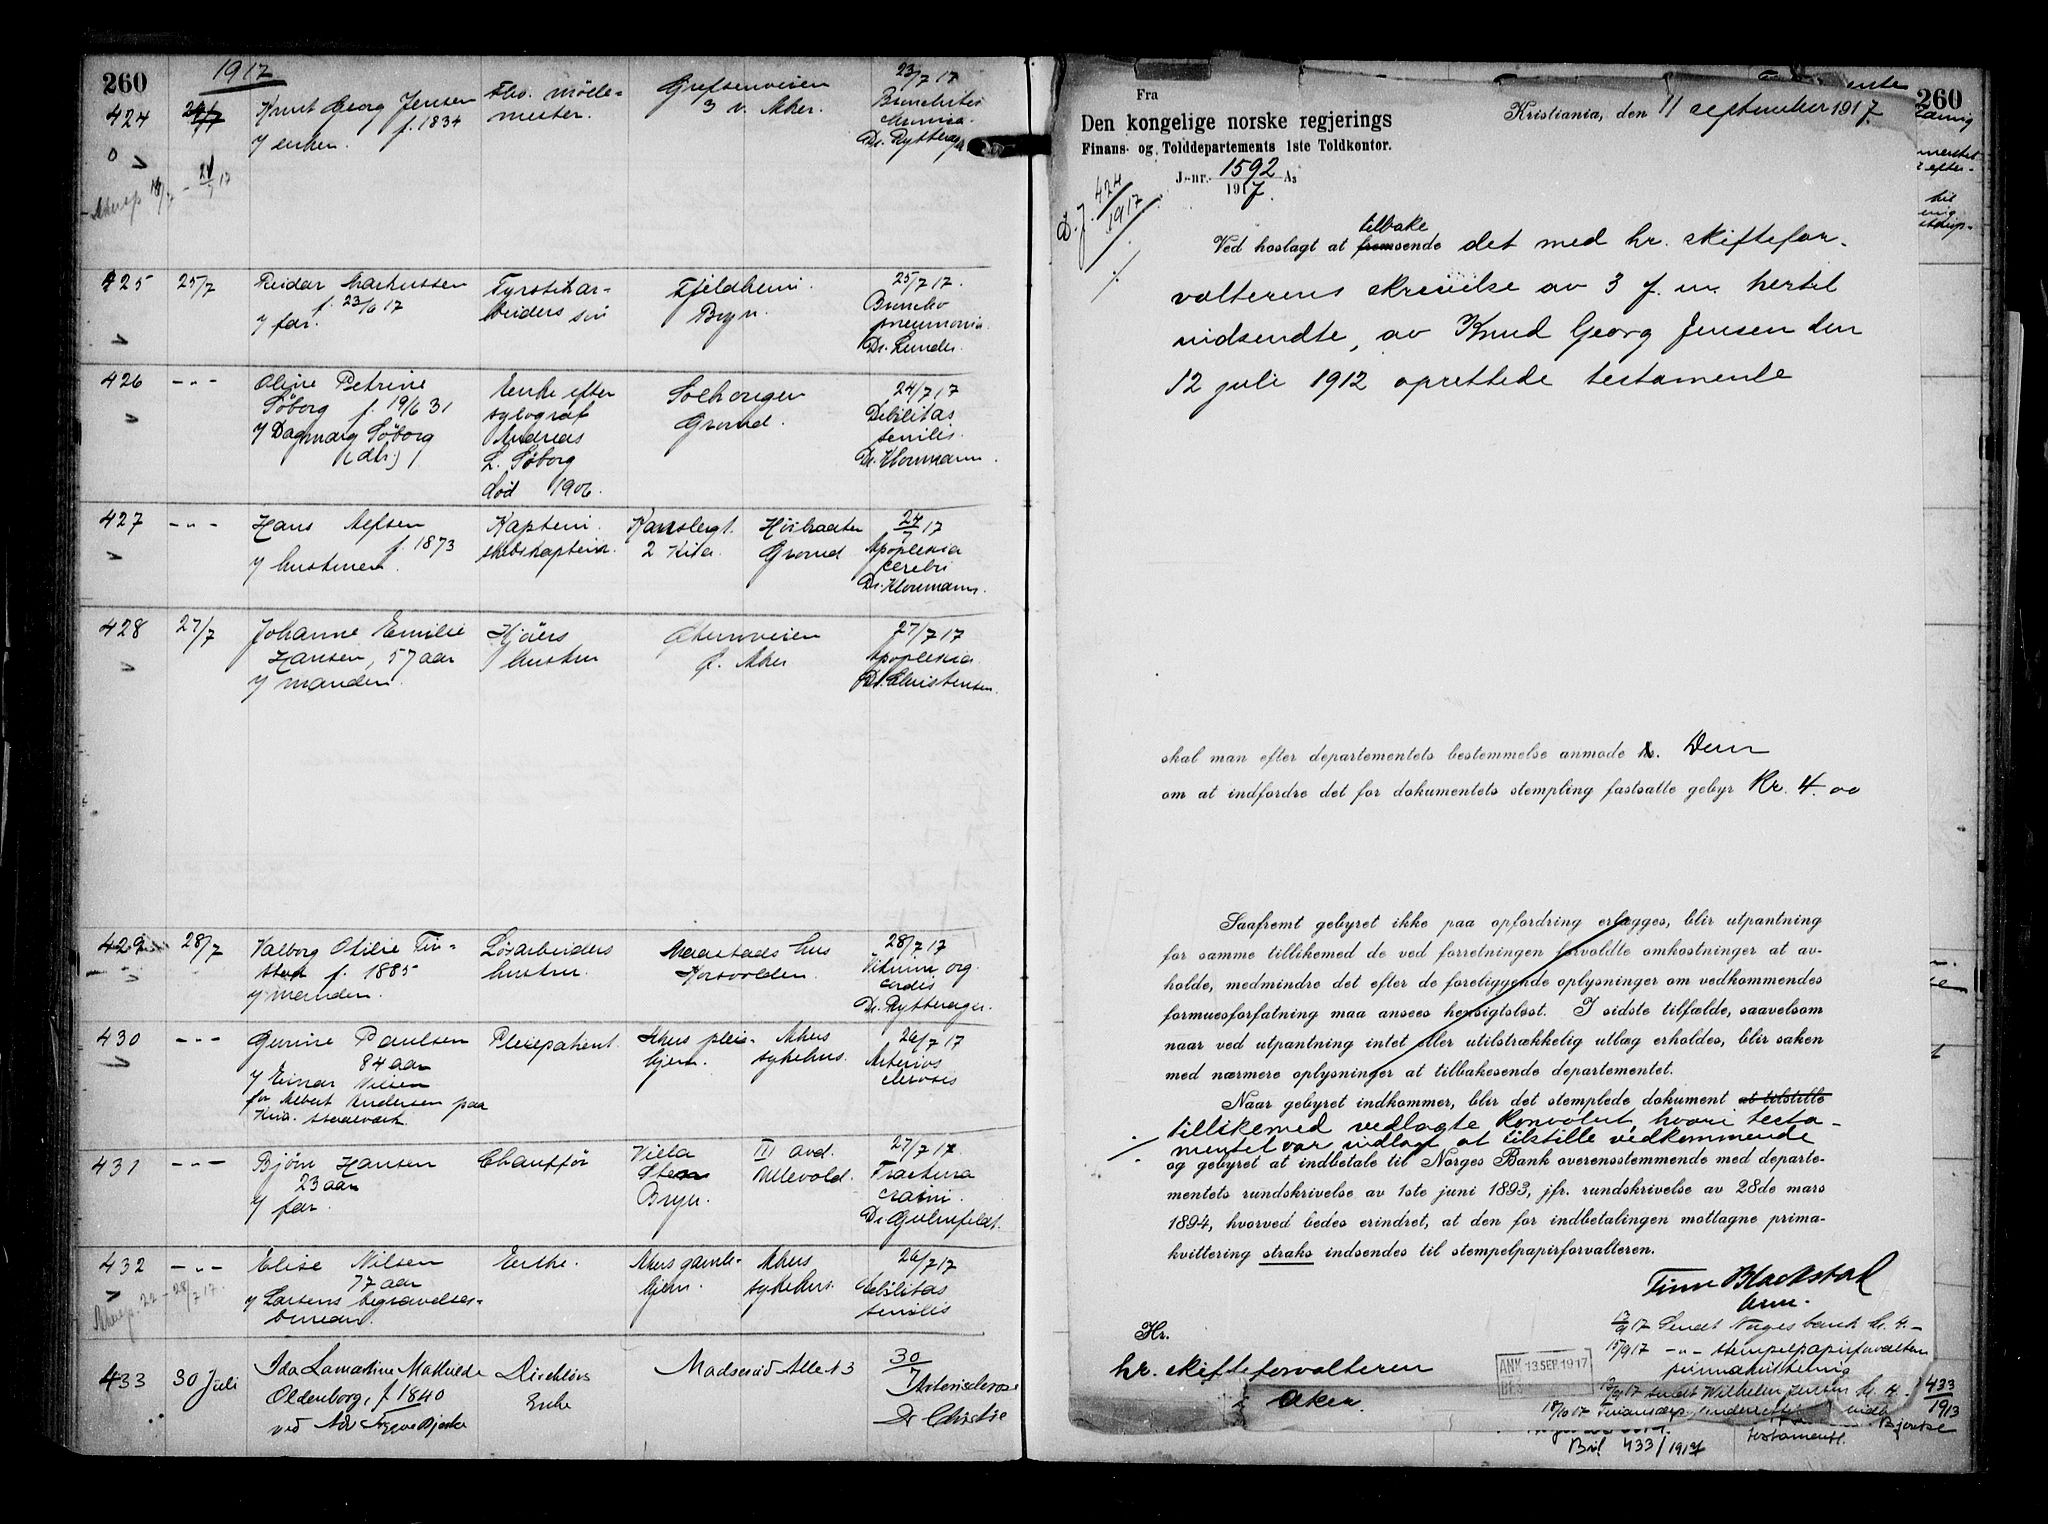 260
1917
424
Knut Georg Jensen
f. 1834
v/ enken.
Fhv. mölle-
mester.
Grefsenveien
3 v. Aker.
23/7 17
Bronchitis
Dr. Rytterager
21/7 17
425
25/7
Reidar Markussen
f. 23/6 17
v/ far.
Fyrstikar-
beiders sön
Fjeldheim
Bryn.
25/7 17.
Broncho
pneumonia.
Dr. Lunde.
426
- " -
Oline Petrine
Söborg f. 19/6 31
v/ Dagmar Söborg
(dtr.)
Enke efter
xylograf
Andreas
L. Söborg
död 1906.
Solhaugen
Grorud.
24/7 17
Debilitas
senilis.
Dr. Kloumann.
427
- " -
Hans Alfsen
f. 1873
v/ hustruen.
Kaptein.
skibskaptein.
2 Kr.a.
Höibraaten
Grorud
24/7 17
Apoplexia
cerebri
Dr. Kloumann.
428
27/7
Johanne Emilie
Hansen, 57 aar
v/ manden.
Kjörs
hustru
Ö. Aker
27/7 17
Apoplexia
Dr. Christensen.
429
28/7
Valborg Otilie Tin-
stad f. 1885
v/ manden.
Lösarbeiders
hustru.
hus
Korsvolden.
28/7 17
Vitium org.
cordis
Dr. Rytterager.
430
- " -
Gunine Paulsen
84 aar
v/ Einar Nilsen
for Albert Andersen paa
Kr.a. staalverk.
Pleiepatient.
Akers pleie-
hjem.
Akers
sykehus.
26/7 17
Arterios
clerosis
431
- " -
Björn Hansen
23 aar
v/ far.
Chaufför
Villa
Sten
Bryn.
III avd.
Ullevold.
27/7 17
Fractura
cranii.
432
- " -
Elise Nilsen
77 aar
v/ Larsens begravelses-
bureau.
Enke.
Akers gamle-
hjem.
Akers
sykehus.
26/7 17
debilitas
senilis
433
30 Juli
Ida Lamartine Mathilde
Oldenborg, f. 1840
ved Adv Trygve Bjerke
Direktörs
Enke
Madserud Alle 13
30/7
Arteriosclerose
Dr Christie
Fra
Den kongelige norske regjerings
Finans- og Tolddepartements 1ste Toldkontor.
J.-nr. 1592 A3
1917.
D. J. 424/1917
Kristiania, den 11 september 1917
260
tilbake
Ved hoslagt at fremsende det med hr. skiftefor-
valterens skrivelse av 3 f. m. hertil
indsendte, av Knud Georg Jensen den
12 juli 1912 oprettede testamente
skal man efter departementets bestemmelse anmode hr. Dem
om at indfordre det for dokumentets stempling fastsatte gebyr Kr. 4.00
Saafremt gebyret ikke paa opfordring erlægges, blir utpantning
for samme tillikemed de ved forretningen forvoldte omkostninger at av-
holde, medmindre det efter de foreliggende oplysninger om vedkommendes
formuesforfatning maa ansees hensigtsløst. I sidste tilfælde, saavelsom
naar ved utpantning intet eller utilstrækkelig utlæg erholdes, blir saken
med nærmere oplysninger at tilbakesende departementet.
Naar gebyret indkommer, blir det stemplede dokument at tilstille
tillikemed vedlagte konvolut, hvori testa-
mentet var indlagt at tilstille vedkommende
og gebyret at indbetale til Norges Bank overensstemmende med departe-
mentets rundskrivelse av 1ste juni 1893, jfr. rundskrivelse av 28de mars
1894, hvorved bedes erindret, at den for indbetalingen mottagne prima-
kvittering straks indsendes til stempelpapirforvalteren.
Finn Blakstad
17/9 17 Sendt Norges bank kr. 4.-
15/9 17 - " - stempelpapirforvalteren
primakvittering
ANK 13 SEP. 1917
Hr.
hr. skifteforvalteren
Aker.
sendt Wilhelm Jensen
433
1913
Bjerke
testament.
Bil 433/1917